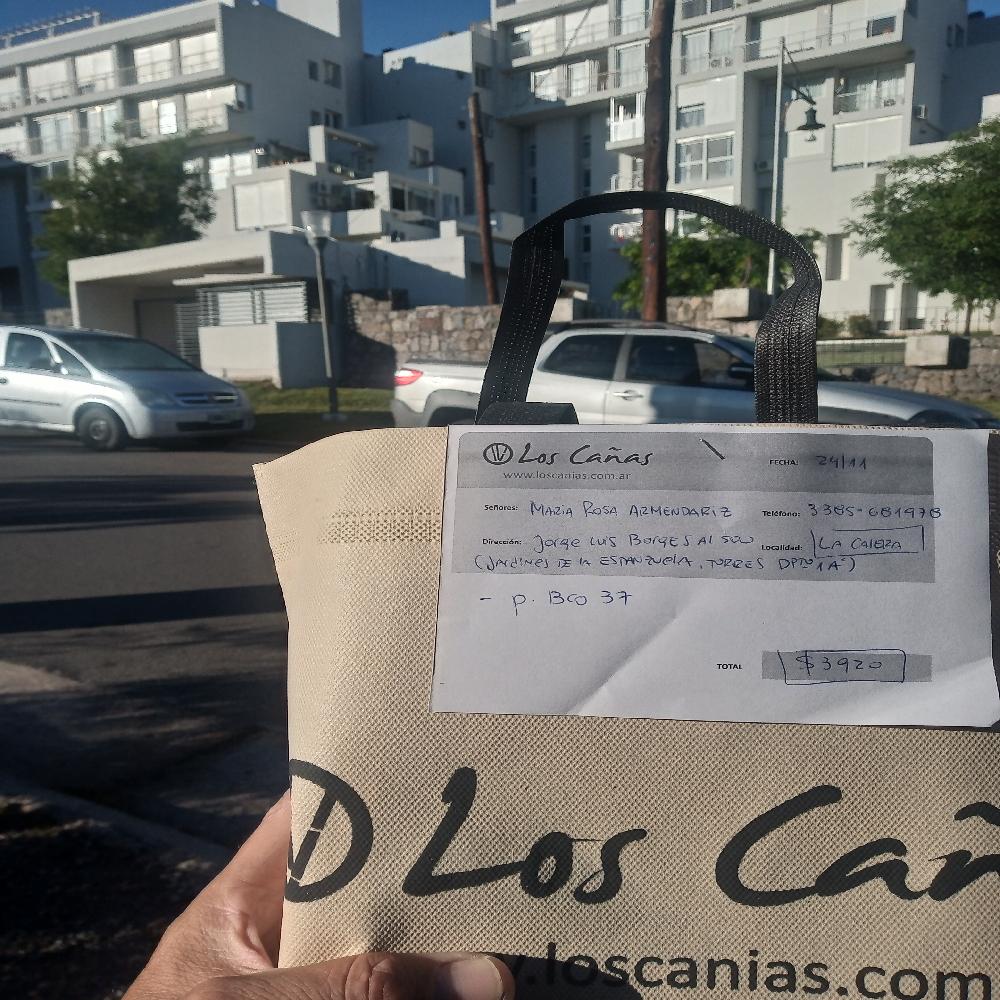 Los Cañas
www.loscanias.com.ar
FECHA: 24/11
Señores: MARIA ROSA ARMENDARIZ Teléfono: 3385-681978
Dirección: Jorge Luis Borges AL 500 Localidad: LA CALERA
(JARDINES DE LA ESTANZUELA, TORRES DPTO 1 "A")
- p. Bco 37
TOTAL $3920
Los Cañ
.loscanias.com